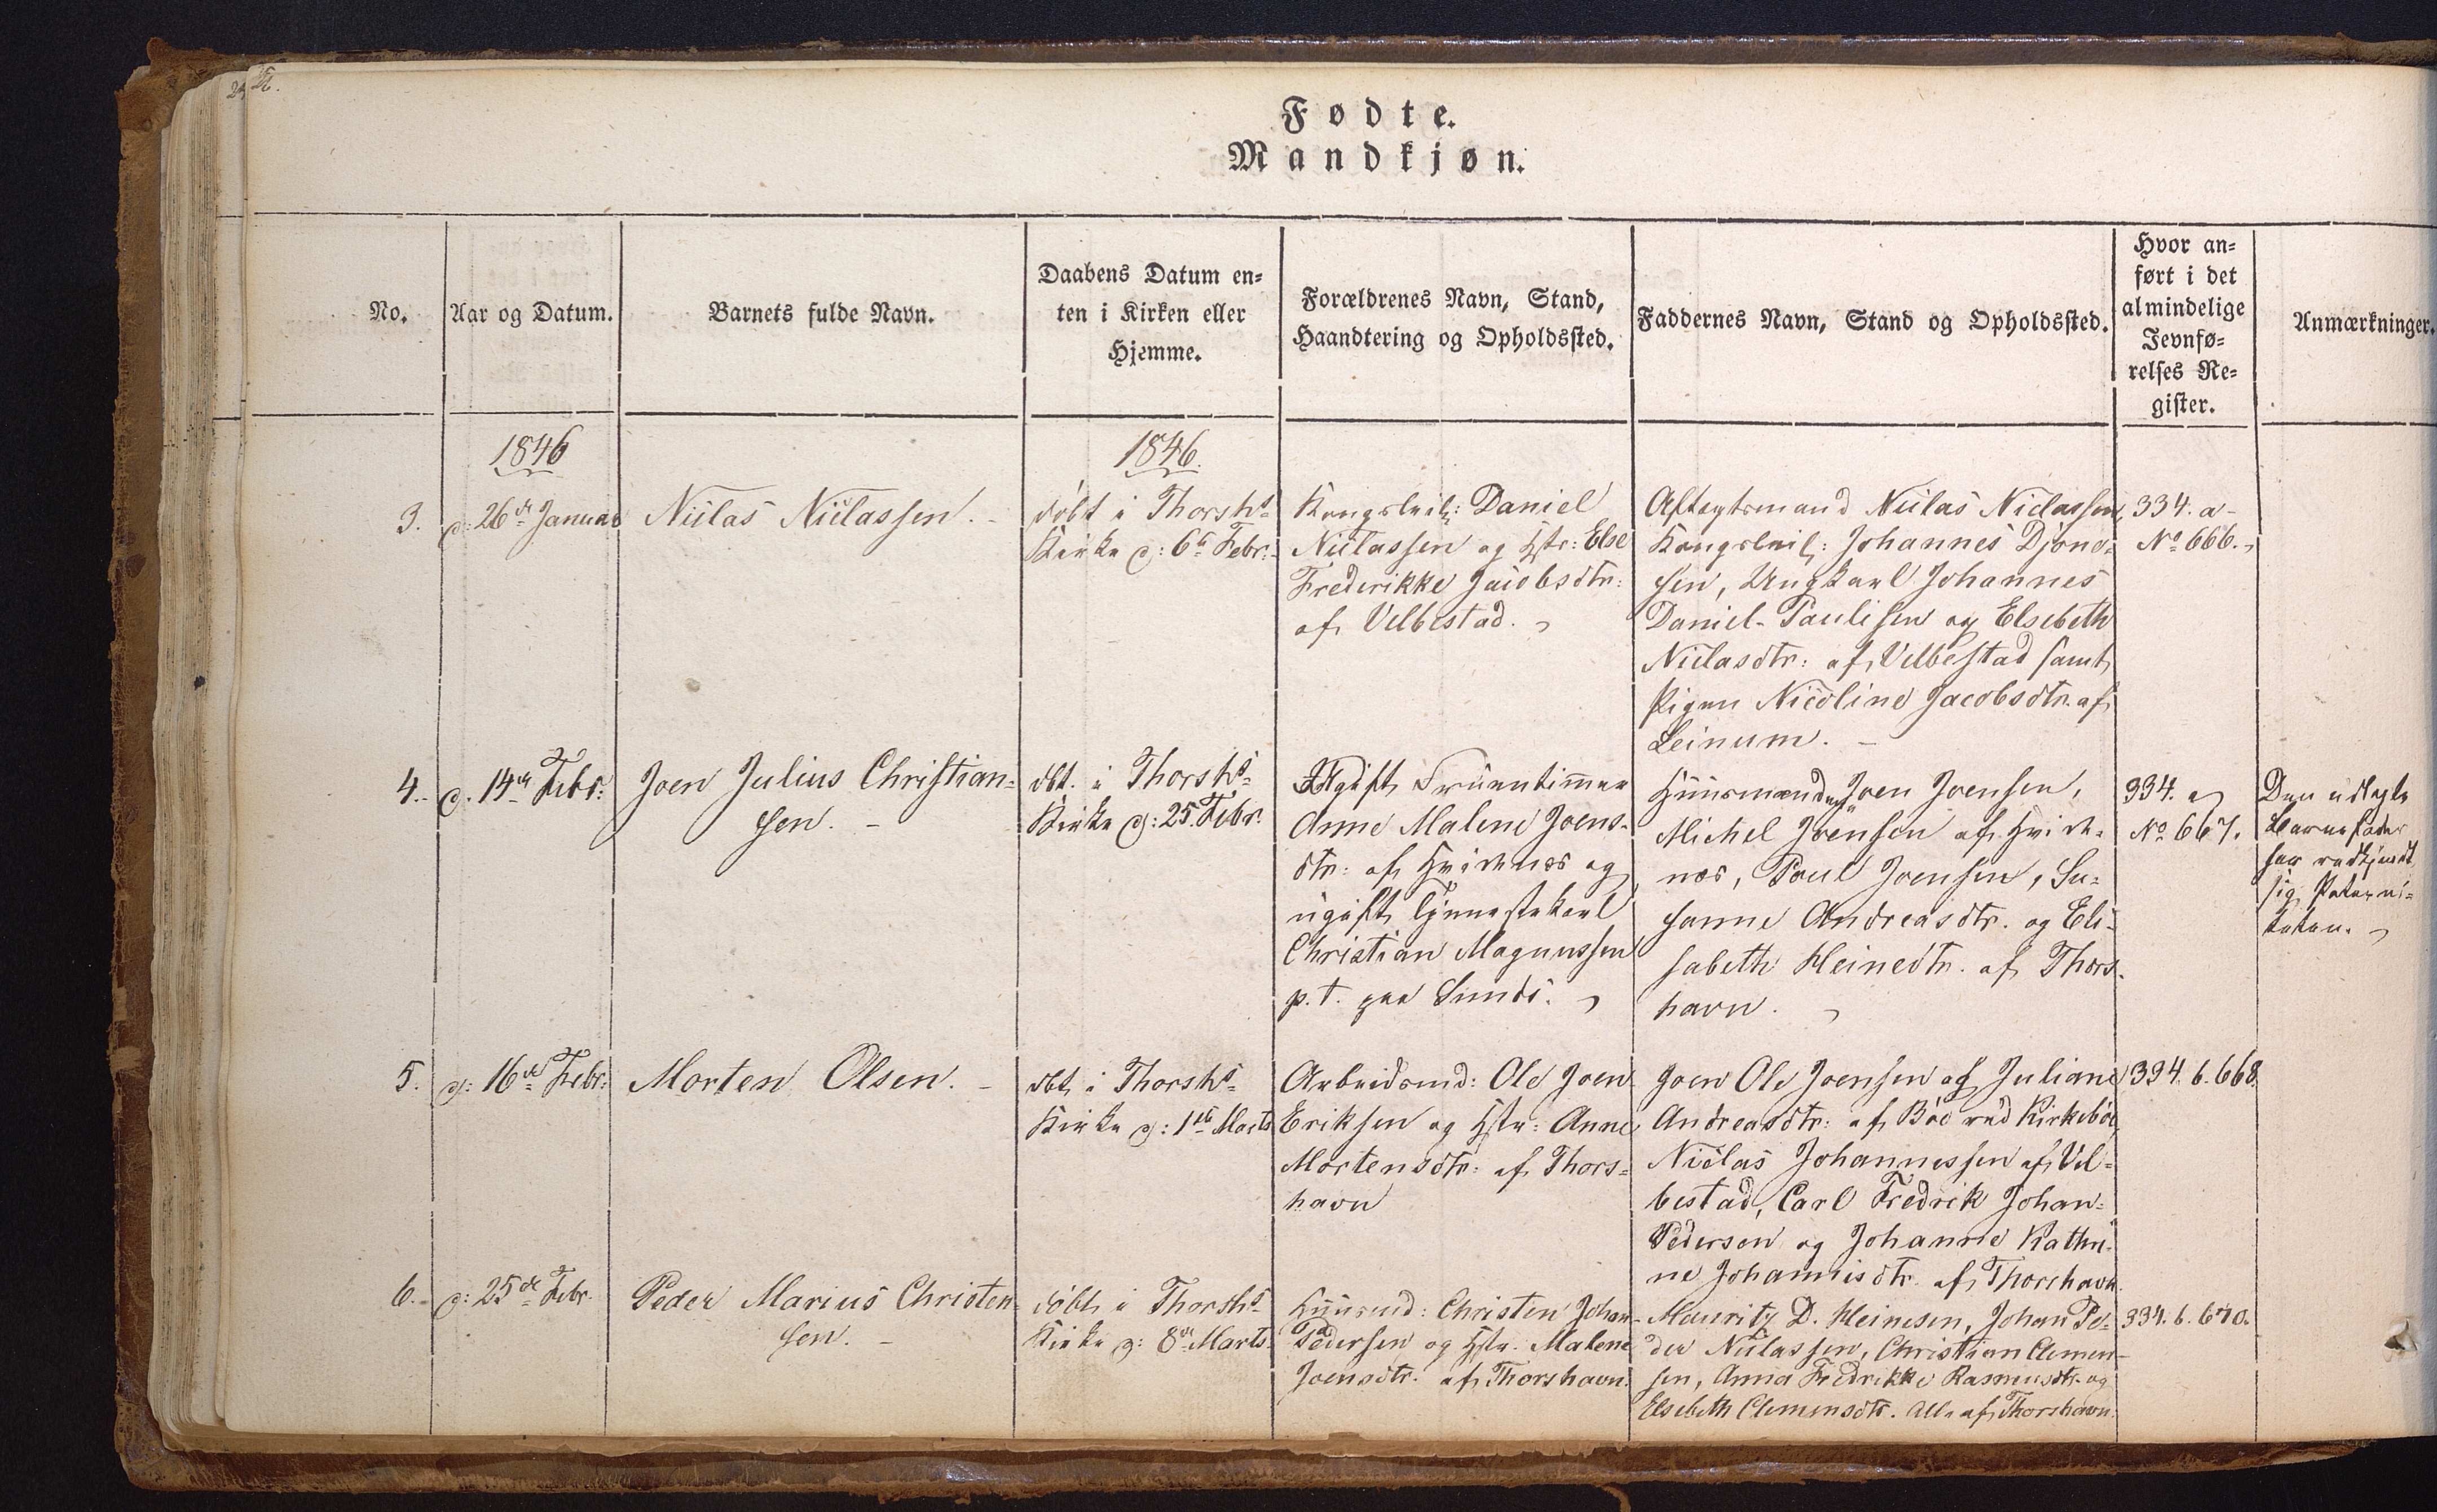 Fødte.
Mandkjøn.
No.
Aar og Datum.
Barnets fulde Navn.
Daabens Datum en-
ten i Kirken eller
Hjemme.
Forældrenes Navn, Stand,
Haandtering og Opholdssted.
Faddernes Navn, Stand og Opholdssted.
Hvor an-
ført i det
almindelige
Jevnfø-
relses Re-
gister.
Anmærkninger.
1846
1846.
3.
d: 26de Januar
Niclas Niclassen.
døbt i Thorshs
Kirke d: 6te Febr.
Kongsleil: Daniel
Niclassen og Hstr: Else
Frederikke Jacobsdtr:
af Velbestad.
Aftægtsmand Niclas Niclassen,
Kongsleil: Johannes Djone-
sen, Ungkarl Johannes
Daniel Paulisen og Elsebeth
Niclasdtr: af Velbestad samt
Pigen Nicoline Jacobsdtr. af
Leinum.
334. a
No 666.
4.
d. 14de Febr:
Joen Julius Christian-
sen.
dbt. i Thorshs
Kirke d: 25. Febr.
Ugift Fruentimmer
Anne Malene Joens-
dtr: af Hvidenæs og
ugift Tjenestekarl
Christian Magnussen
p.t. paa Sundi.
Huusmændene Joen Joensen,
Michel Joensen af Hvide-
næs, Poul Joensen, Su-
sanne Andreasdtr. og Eli-
sabeth Heinedtr. af Thors-
havn.
334. a
No 667.
Den udlagte
Barnefader
har vedkjendt
sig Paterni-
teten.
5.
d: 16de Febr:
Morten Olsen.
dbt i Thorshs
Kirke d: 1ste Marts
Arbeidsmd: Ole Joen
Eriksen og Hstr: Anne
Mortensdtr: af Thors-
havn
Joen Ole Joensen og Juliane
Andreasdtr: af Bøe ved Kirkebøe,
Niclas Johannessen af Vel-
bestad, Carl Fredrik Johan-
Pedersen og Johanne Kathri-
ne Johannisdtr. af Thorshavn.
334. b. 668.
6.
d: 25de Febr.
Peder Marius Christen-
sen.
døbt i Thorshs
Kirke d: 8de Marts.
Huusmd: Christen Johan
Pedersen og Hstr. Malene
Joensdtr. af Thorshavn.
Mauritz D. Heinesen, Johan Pe-
der Niclassen, Christian Clemen-
sen, Anna Fredrikke Rasmusdtr. og
Elsebeth Clemensdtr. Alle af Thorshavn.
334. b. 670.